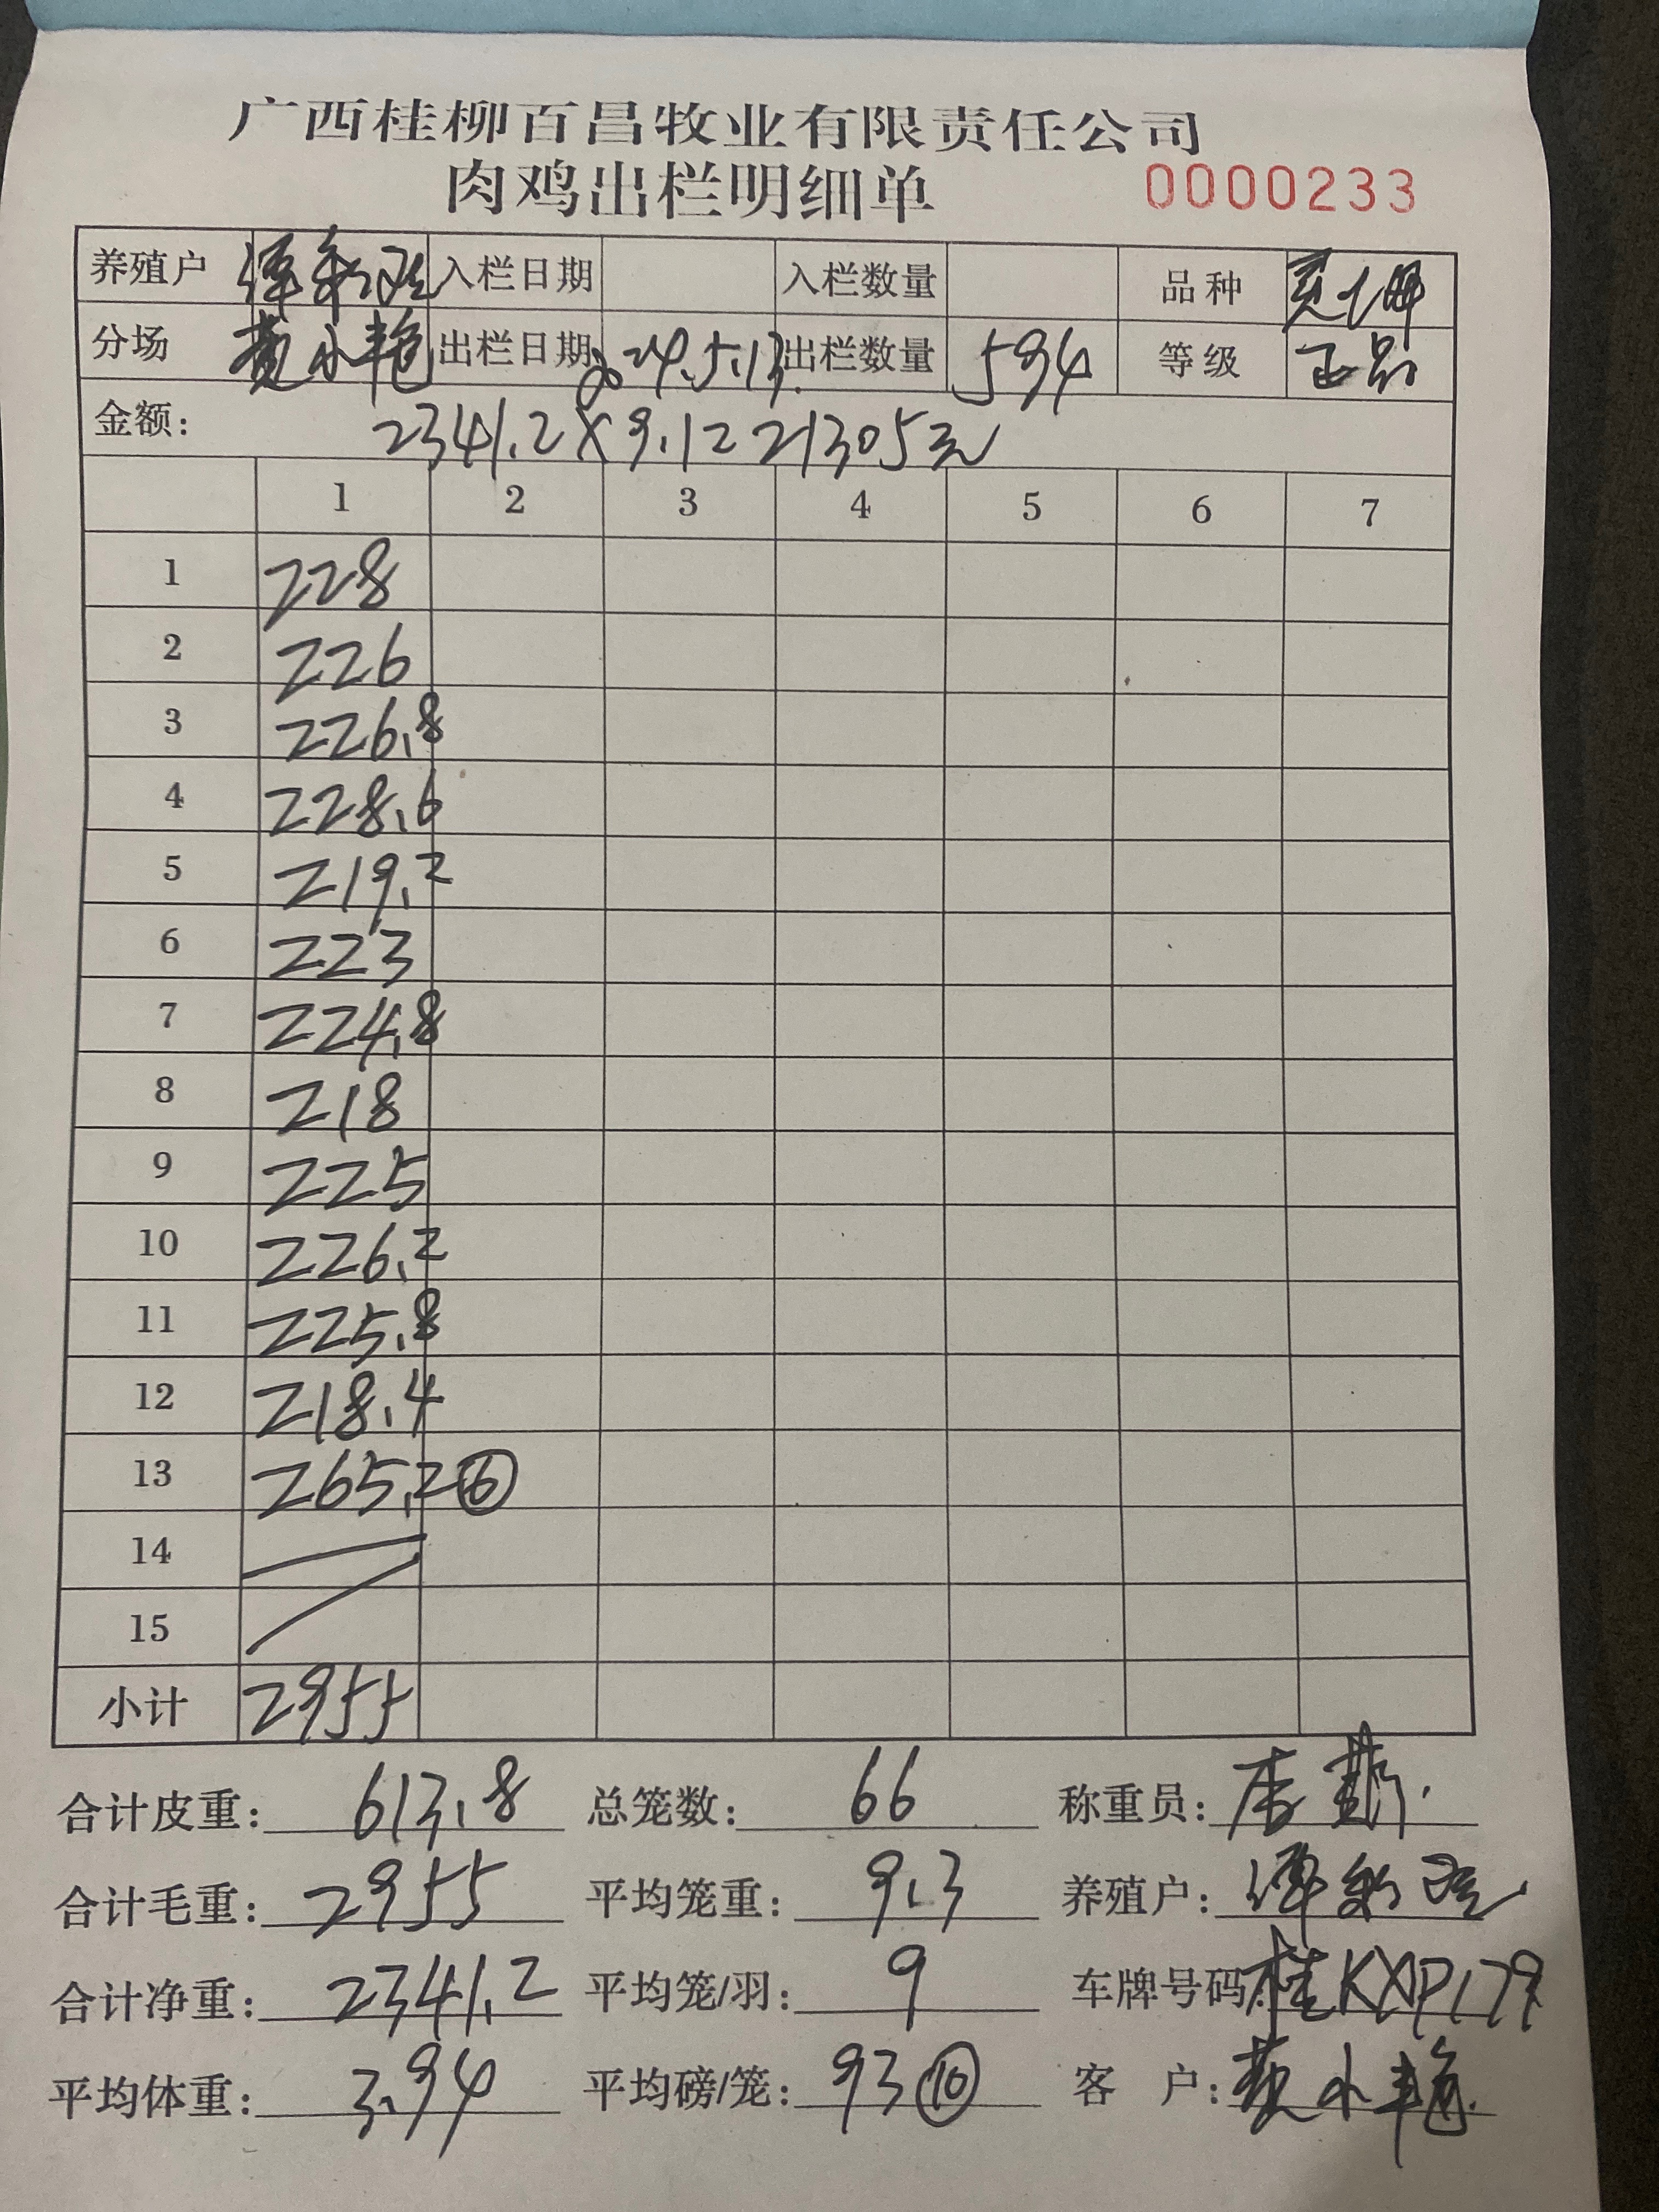 广西桂柳百昌牧业有限责任公司
肉鸡出栏明细单 0000233
养殖户 谭 入栏日期 入栏数量 品种
分场 黄小艳 出栏日期 2024.5.13. 出栏数量 594 等级 正品
金额: 2341.2X9.1=21305元
1 2 3 4 5 6 7
1 228
2 226
3 226.8
4 228.6
5 219.2
6 223
7 224.8
8 218
9 225
10 226.2
11 225.8
12 218.4
13 265.2 ⑥
14
15
小计 2955
合计皮重: 613.8 总笼数: 66 称重员:
合计毛重: 2955 平均笼重: 9.3 养殖户: 谭
合计净重: 2341.2 平均笼/羽: 9 车牌号码: 桂KXP179
平均体重: 3.94 平均磅/笼: 93 ⑩ 客 户: 黄小艳